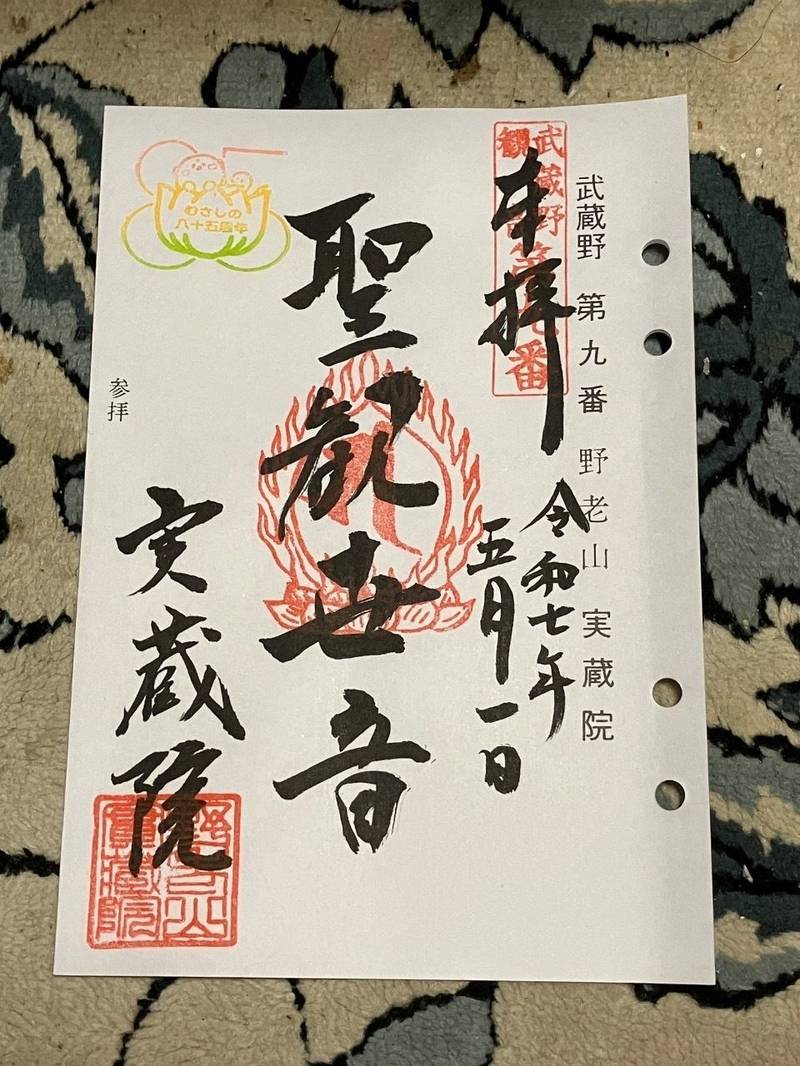 武蔵野 第九番 野老山 実蔵院
武蔵野第九番
奉拝
令和七年
五月一日
聖観世音
むさしの
八十五周年
参拝
実蔵院
野老山
實藏院